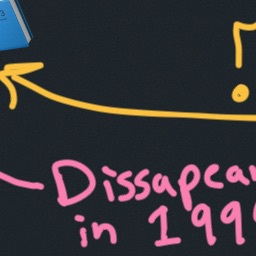 Dissapea
in 199